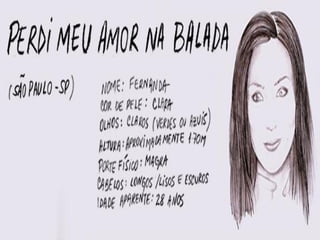 PERDI MEU AMOR NA BALADA
(SÃO PAULO-SP)
NOME: FERNANDA
COR DE PELE: CLARA
OLHOS: CLAROS (VERDES OU AZUIS)
ALTURA: APROXIMADAMENTE 1.70M
PORTE FÍSICO: MAGRA
CABELOS: LONGOS/LISOS E ESCUROS
IDADE APARENTE: 28 ANOS